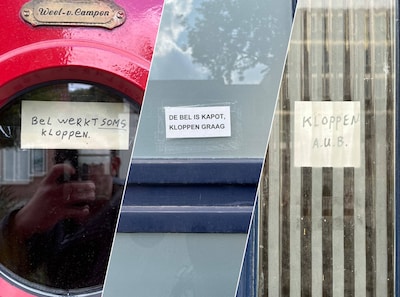 Weel-v. Campen
Bel werkt soms
kloppen.
DE BEL IS KAPOT,
KLOPPEN GRAAG
KLOPPEN
A.U.B.